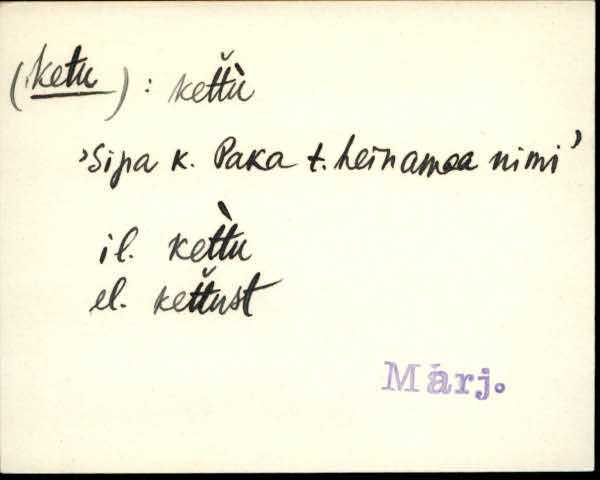 (ketu) : keťťù
'Sipa k. Paka t. heinamaa nimi'
il. kettu
el. keťťust
Märj.